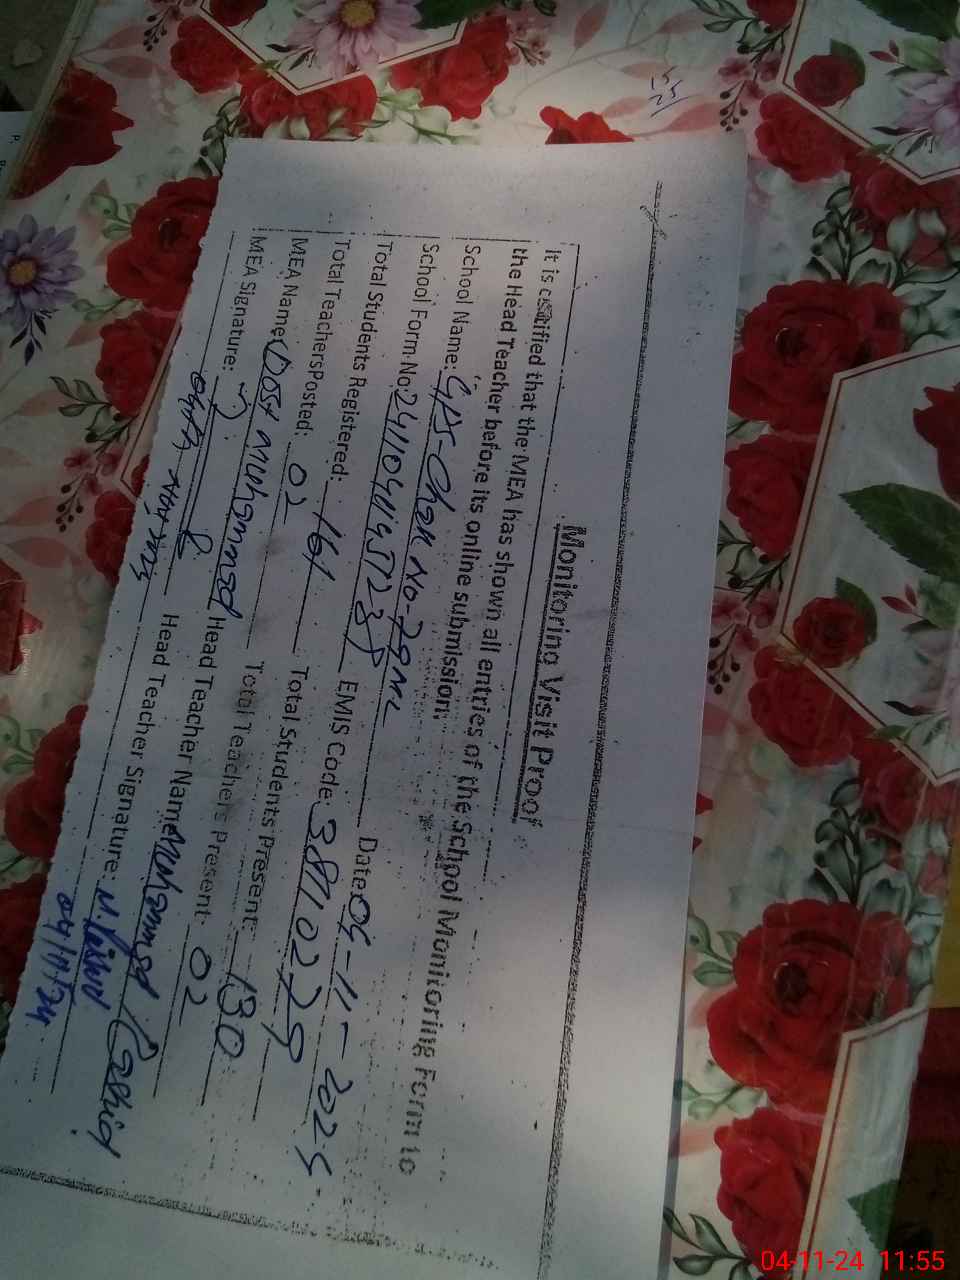 Monitoring Visit Proof
It is certified that the MEA has shown all entries of the School Monitoring Form to
the Head Teacher before its online submission.
School Name: GPS-Chak No-79M2
School Form No: Date:
Total Students Registered: 161 EMIS Code: 38110229
Total Teachers Posted: 02 Total Students Present: 130
MEA Name: Dost Muhammad Total Teachers Present: 02
MEA Signature: Head Teacher Name: Muhammad Rashid
Head Teacher Signature:
04/11/24
04-11-24 11:55